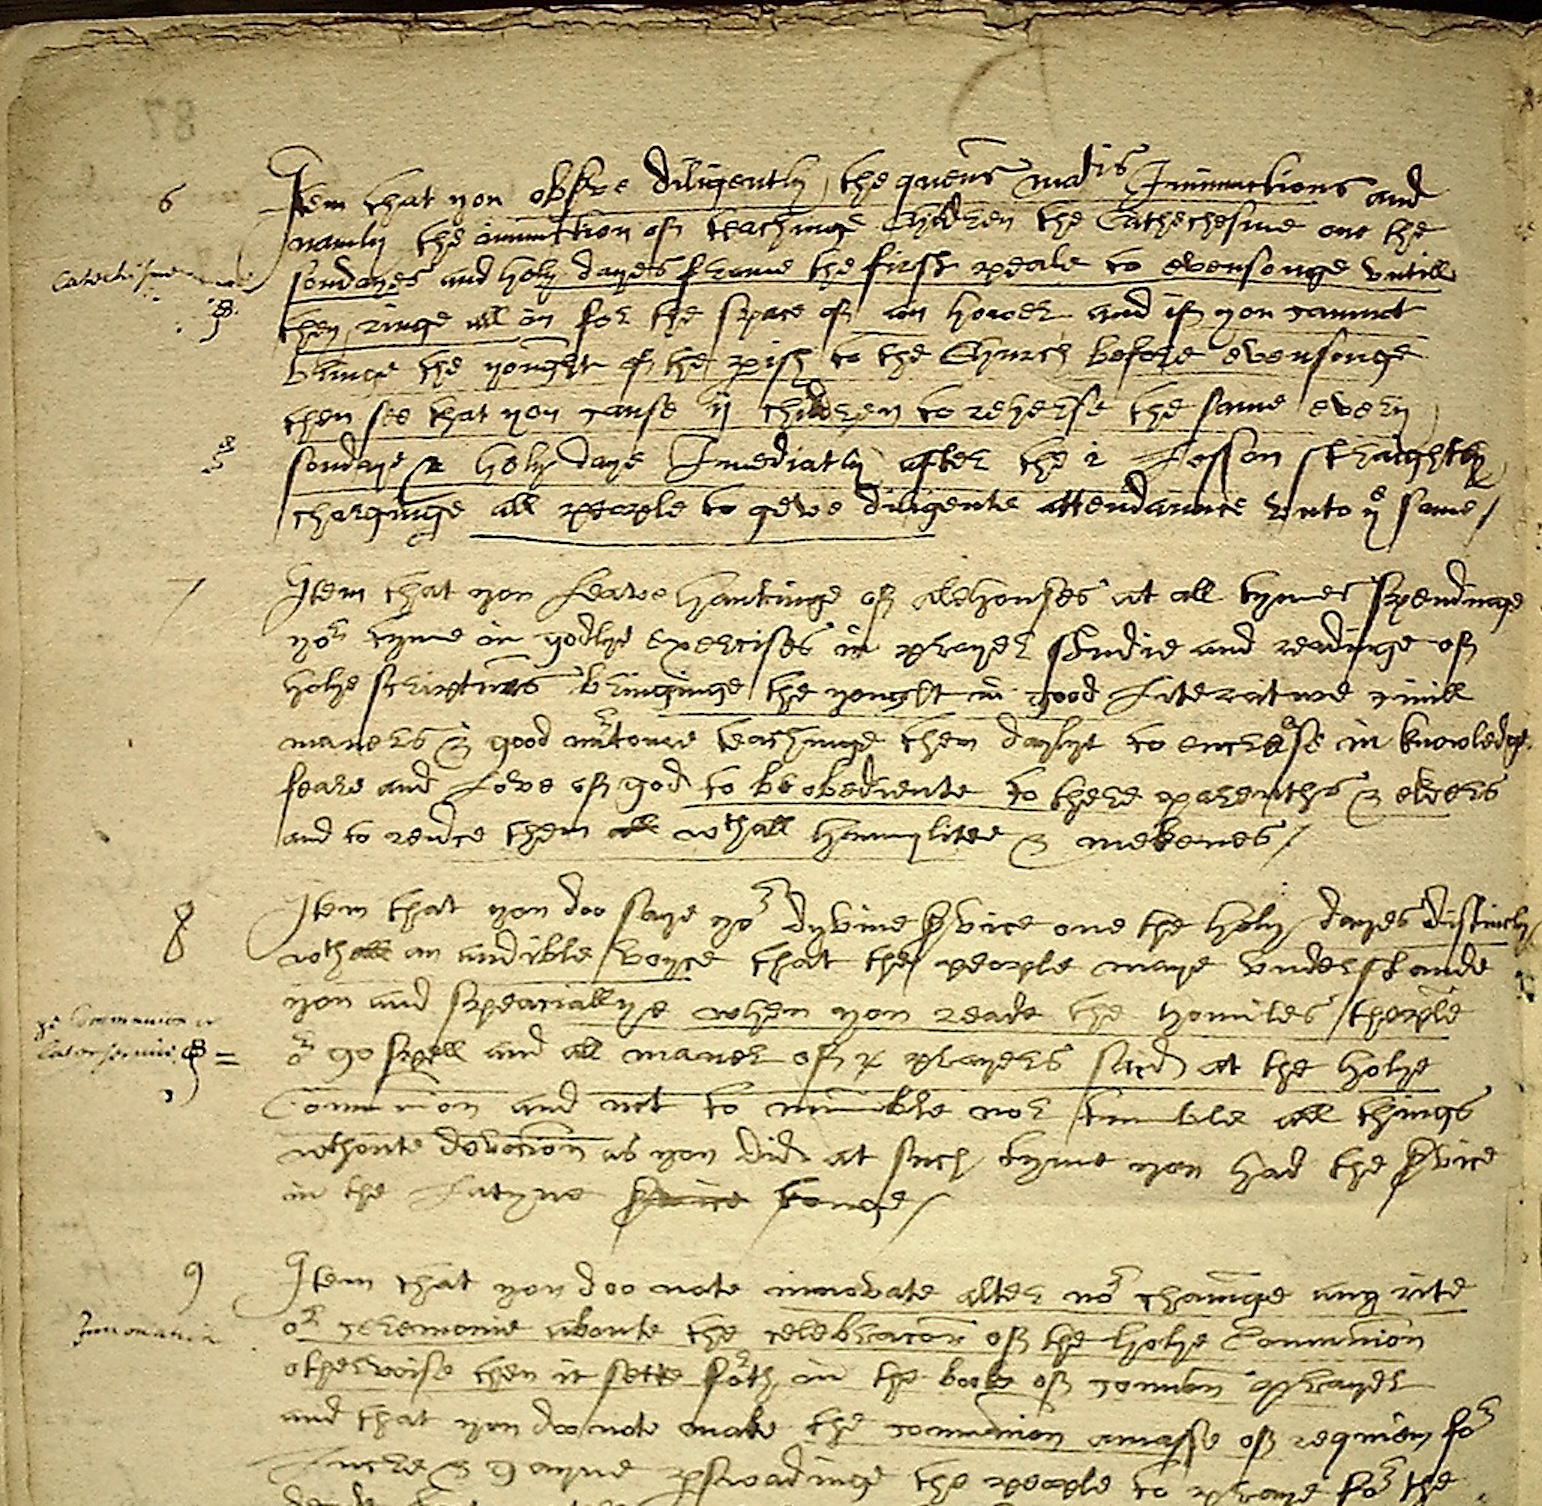 6
Item that you obs've diligently the quens ma^tis Iniunctions and
namly the iniunction of teachinge Children the Cathechesme one the
Catechisme
sondayes and holy dayes frome the first peale to evensonge vntill
they ringe all in for the space of an hower and if you cannot
bringe the yought of the p'ish to the Church before evensonge
then see that you cause ij children to reherse the same every
sondaye & holy daye Imediatly after the 2 Lesson straightly
charginge all people to geve diligente attendaunce vnto y^e same /
7
Item that you leave hauntinge of alehouses at all tymes spendinge
yo^r tyme in godlye exercises in prayer studie and readinge of
holye scriptures bringinge the yought in good literature ciuill
maners & good nurtoure teachinge them daylye to encrease in knowledge
feare and Love of god to be obediente to there parenthes & elders
and to reu'ce them all w^th all humylitee & mekenes /
8
Item that you doo saye yo^r dyvine s'vice one the holy dayes distincly
w^th all an audible voyce that the people maye vnderstande
you and speaciallye when you reade the homiles thepi'le
y^e Communion or
Later servise
o^r gospell and all maner of prayers said at the holye
Comunion and not to mumble nor tumble all things
w^thoute devocion as you did at such tyme you had the s'vice
in the Latyne s'vice tonge /
9
Item that you doo note innovate alter no^r chaunge any rite
Innovation
o^r ceremonie aboute the celebracon of the holye Communion
otherwise then it sette forth in the booke of common prayer
and that you doo note make the communion a masse of requiem fo^r
Lucre & gayne p'swadinge the people to praye fo^r the